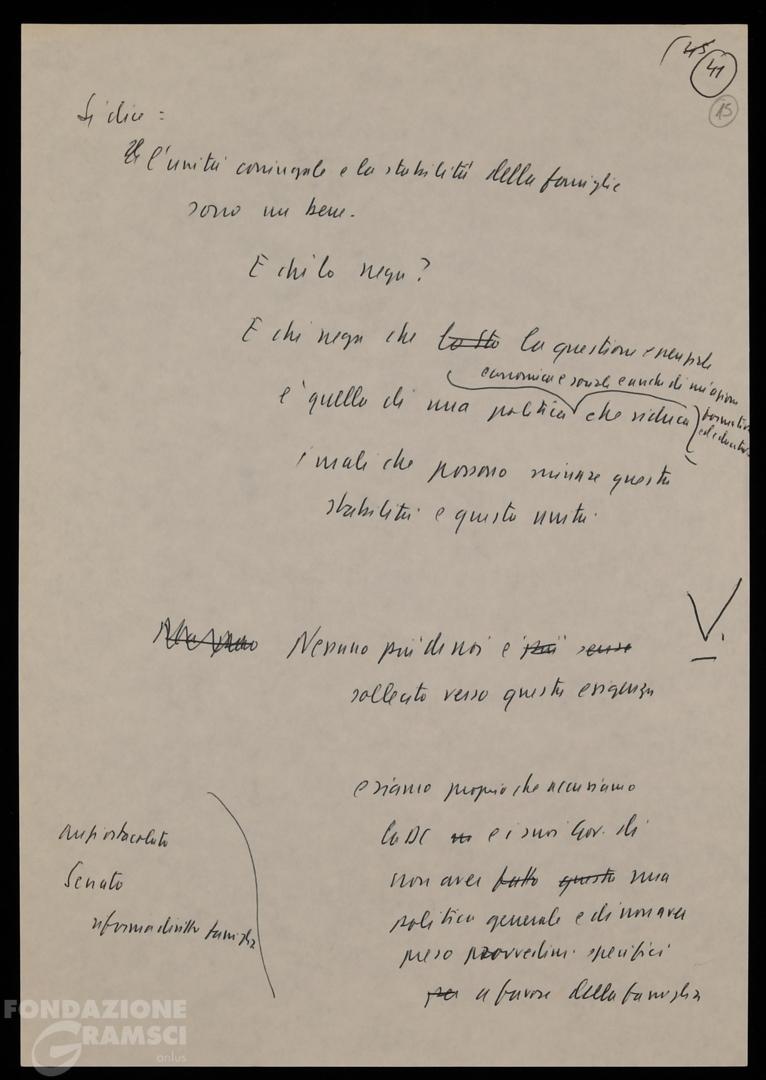 45
41
15
Si dice:
l'unità coniugale e la stabilità della famiglia
sono un bene.
E chi lo nega?
E chi nega che la questione essenziale
economica e sociale e anche di un'azione
è quella di una politica che riduca
formativa
ed educativa
i mali che possono minare questa
stabilità e questa unità.
V.
Nessuno più di noi è più
sollecito verso questa esigenza
e siamo proprio che accusiamo
la DC e i suoi Gov. di
non aver fatto questo una
politica generale e di non aver
preso provvedim. specifici
per a favore della famiglia
anzi ostacolato
Senato
riforma diritto famiglia
FONDAZIONE
GRAMSCI
onlus